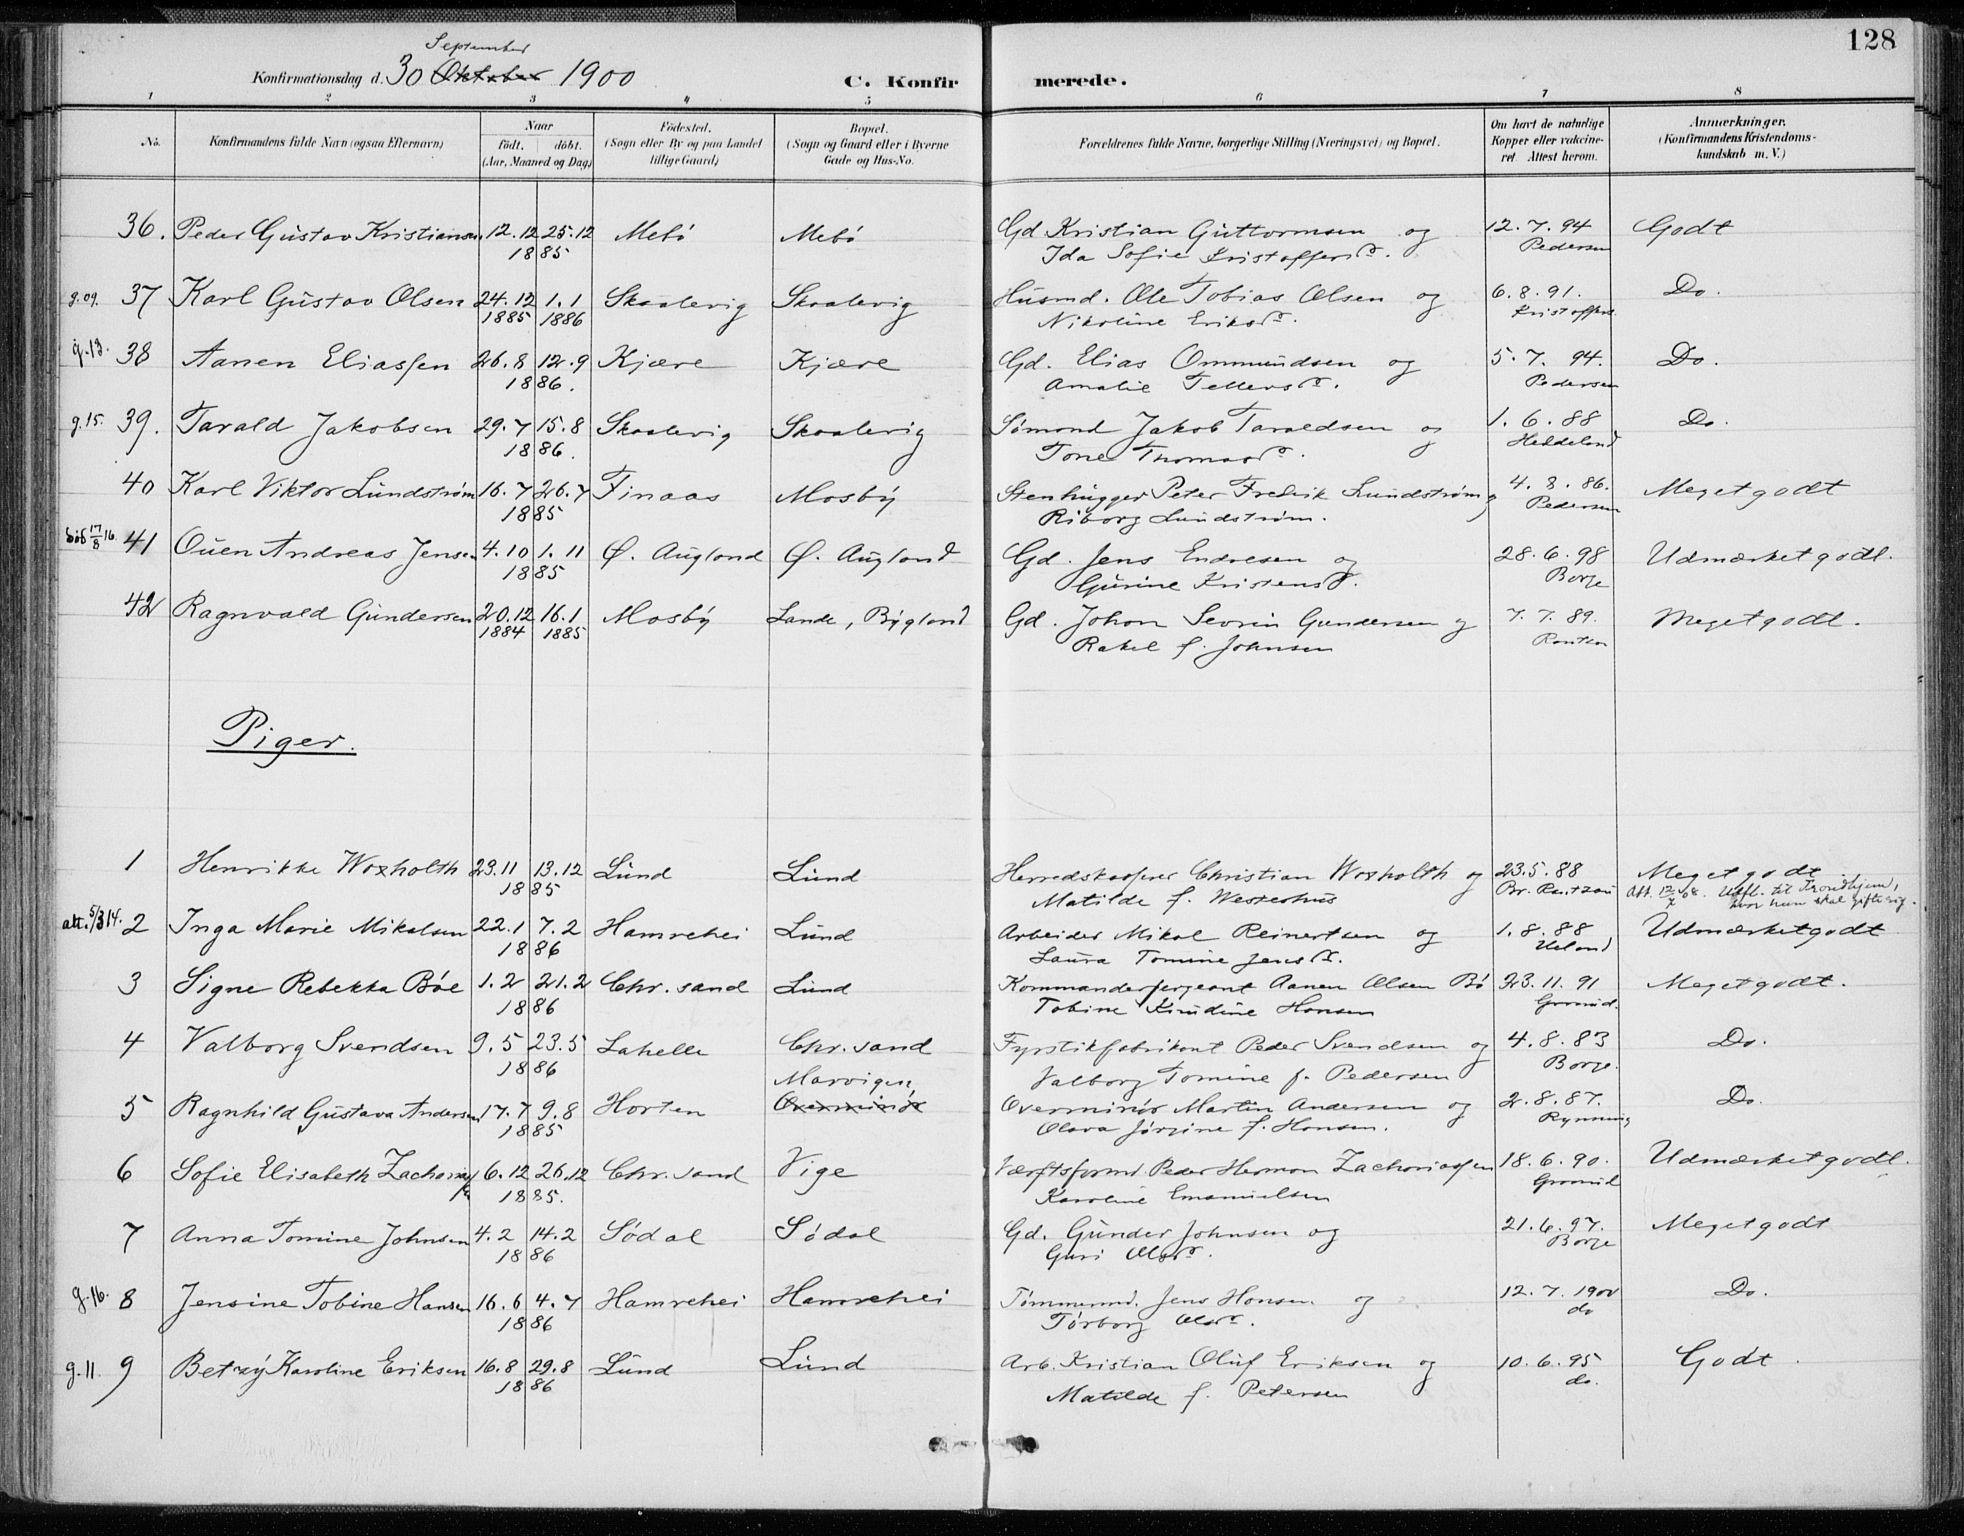 128
September
Konfirmationsdag d. 30 Oktober 1900
C. Konfirmerede.
1 2 3 4 5 6 7 8
No.
Konfirmandens fulde Navn (ogsaa Efternavn)
Naar
födt. döbt.
(Aar, Maaned og Dag)
Födested.
(Sogn eller By og paa Landet
tillige Gaard)
Bopæl.
(Sogn og Gaard eller i Byerne
Gade og Hus-No.
Forældrenes fulde Navne, borgerlige Stilling (Næringsvei) og Bopæl.
Om havt de naturlige
Kopper eller vakcine-
ret Attest herom.
Anmærkninger.
(Konfirmandens Kristendoms-
kundskab m. V.)
36. Peder Gustav Kristiansen 12.12 25.12 Mebö Mebö Gd Kristian Guttormsen og 12.7.94 Godt
1885 Ida Sofie Kristoffersd. Pedersen
g.09. 37 Karl Gustav Olsen 24.12 1.1 Skaalevig Skaalevig Husmd. Ole Tobias Olsen og 6.8.91. Do.
1885 1886 Nikoline Eriksd. Kristoffers
g.13. 38 Aanen Eliassen 26.8 12.9 Kjære Kjære Gd. Elias Ommundsen og 5.7.94. Do.
1886. Amalie Tellevsd. Pedersen
g.15. 39. Tarald Jakobsen 29.7 15.8 Skaalevig Skaalevig Sømand Jakob Taraldsen og 1.6.88 Do.
1886. Tone Thomasd. Heddeland
40 Karl Viktor Lundstrøm 16.7 26.7 Finaas Mosby Stenhugger Peter Fredrik Lundstrøm og 4.8.86. Meget godt
1885 Riborg Lundstrøm. Pedersen
17/8 16. 41 Ouen Andreas Jensen 4.10 1.11 Ø. Augland Ø. Augland Gd. Jens Endresen og 28.6.98 Udmærket godt.
1885 Gurine Kristensd. Borge
42 Ragnvald Gundersen 20.12 16.1 Mosby Lande, Bygland Gd. Johan Severin Gundersen og 7.7.89. Meget godt.
1884 1885 Rakel f. Johnsen
Piger.
1 Henrikke Woxholth 23.11 13.12 Lund Lund Herredskasserer Christian Woxholth og 23.5.88 Meget godt
1885 Matilde f. Westerhus Br. Rentzau Att. 12/7 08. Udfl. til Trondhjem,
hvor hun skal gifte sig.
att. 5/3 14. 2 Inga Marie Mikalsen 22.1 7.2 Hamrehei Lund Arbeider Mikal Reinertsen og 1.8.88 Udmærket godt
1886 Laura Tomine Jensd. Ueland
3 Signe Rebekka Böe 1.2 21.2 Chr.sand Lund Kommandersergeant Aanen Olsen Bö 23.11.91 Meget godt.
1886 Tobine Knudine Hansen
4 Valborg Svendsen 9.5 23.5 Lahelle Chr.sand Fyrstikfabrikant Peder Svendsen og 4.8.83 Do.
1886 Valborg Tomine f. Pedersen Borge.
Marvigen,
5 Ragnhild Gustava Andersen 17.7 9.8 Horten Overminör Overminör Martin Andersen og 2.8.87. Do.
1885 Olava Jørgine f. Hansen. Rynning
6 Sofie Elisabeth Zachariassen 6.12 26.12 Chr.sand Vige Værftsformd. Peder Herman Zachariassen 18.6.90. Udmærket godt.
1885. Karoline Emanuelsen
7 Anna Tomine Johnsen 4.2 14.2 Södal Södal Gd. Gunder Johnsen og 21.6.97. Meget godt
1886 Guri Olsd. Borge
g.16. 8 Jensine Tobine Hansen 16.6 4.7 Hamrehei Hamrehei Tømmermd. Jens Hansen og 12.7.1900 Do.
1886 Torborg Olsd. do
g.11. 9 Betzy Karoline Eriksen 16.8 29.8 Lund Lund Arb. Kristian Oluf Eriksen og 10.6.95 Godt.
1886 Matilde f. Petersen do.